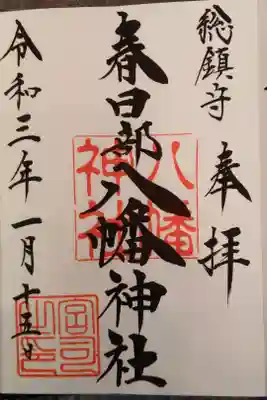 総鎮守
奉拝
春日部八幡神社
八幡神社
令和三年一月十五日
宮司之印